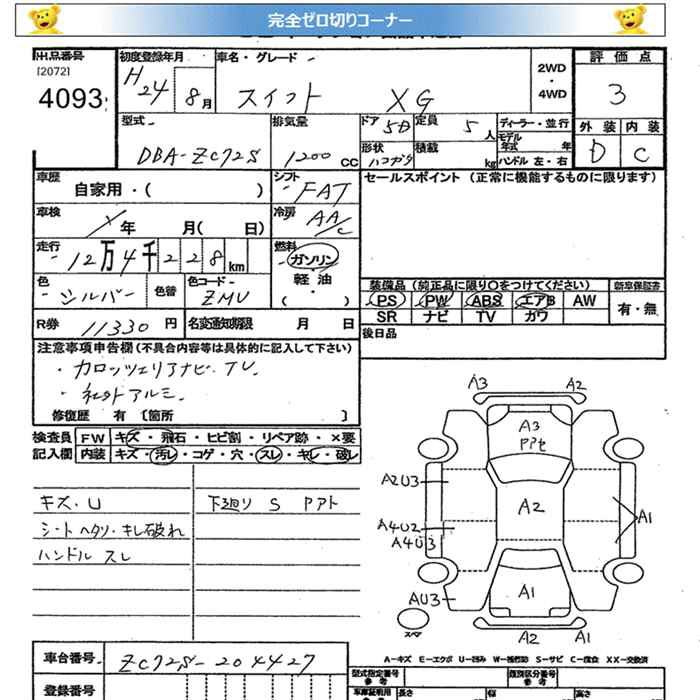 完全ゼロ切りコーナー
出品番号 初度登録年月 車名・グレード 評価点
[2072] H 24 8月 スイフト XG 2WD・4WD 3
4093
型式 排気量 ドア 5D 定員 5人 ディーラー・並行 外装 内装
モデル年式 年
DBA-ZC72S 1200 cc 形状 積載 kg ハンドル 左・右 D C
車歴 自家用・( ) シフト FAT セールスポイント (正常に機能するものに限ります)
車検 年 月( 日) 冷房 AA/C
走行 12万4千228km 燃料 ガソリン・軽油・( )
色 シルバー 色替 色コード ZMU 装備品(純正品に限り○をつけてください) 新車保証書
PS PW ABS エアB AW 有・無
R券 11330円 名変通知期限 月 日 SR ナビ TV カワ
後日品
注意事項申告欄(不具合内容等は具体的に記入して下さい)
・カロッツェリアナビ・TV.
・社外アルミ.
修復歴 有 〔箇所 〕
検査員 FW キズ・飛石・ヒビ割・リペア跡・×要
記入欄 内装 キズ・汚レ・コゲ・穴・スレ・キレ・破レ
キズ・U 下廻り S Pアト
シートヘタリ・キレ破れ
ハンドルスレ
A3 A2
A3
Pアセ
A2U3 A2
A4U2 A1
A4U3
AU3 A1
スペア A2 A1
A-キズ E-エクボ U-凹み W-補修跡 S-サビ C-腐食 XX-交換済
車台番号 ZC72S-204427 型式指定番号 類別区分番号
参考 参考
登録番号 車庫証明用 長さ 幅 高さ